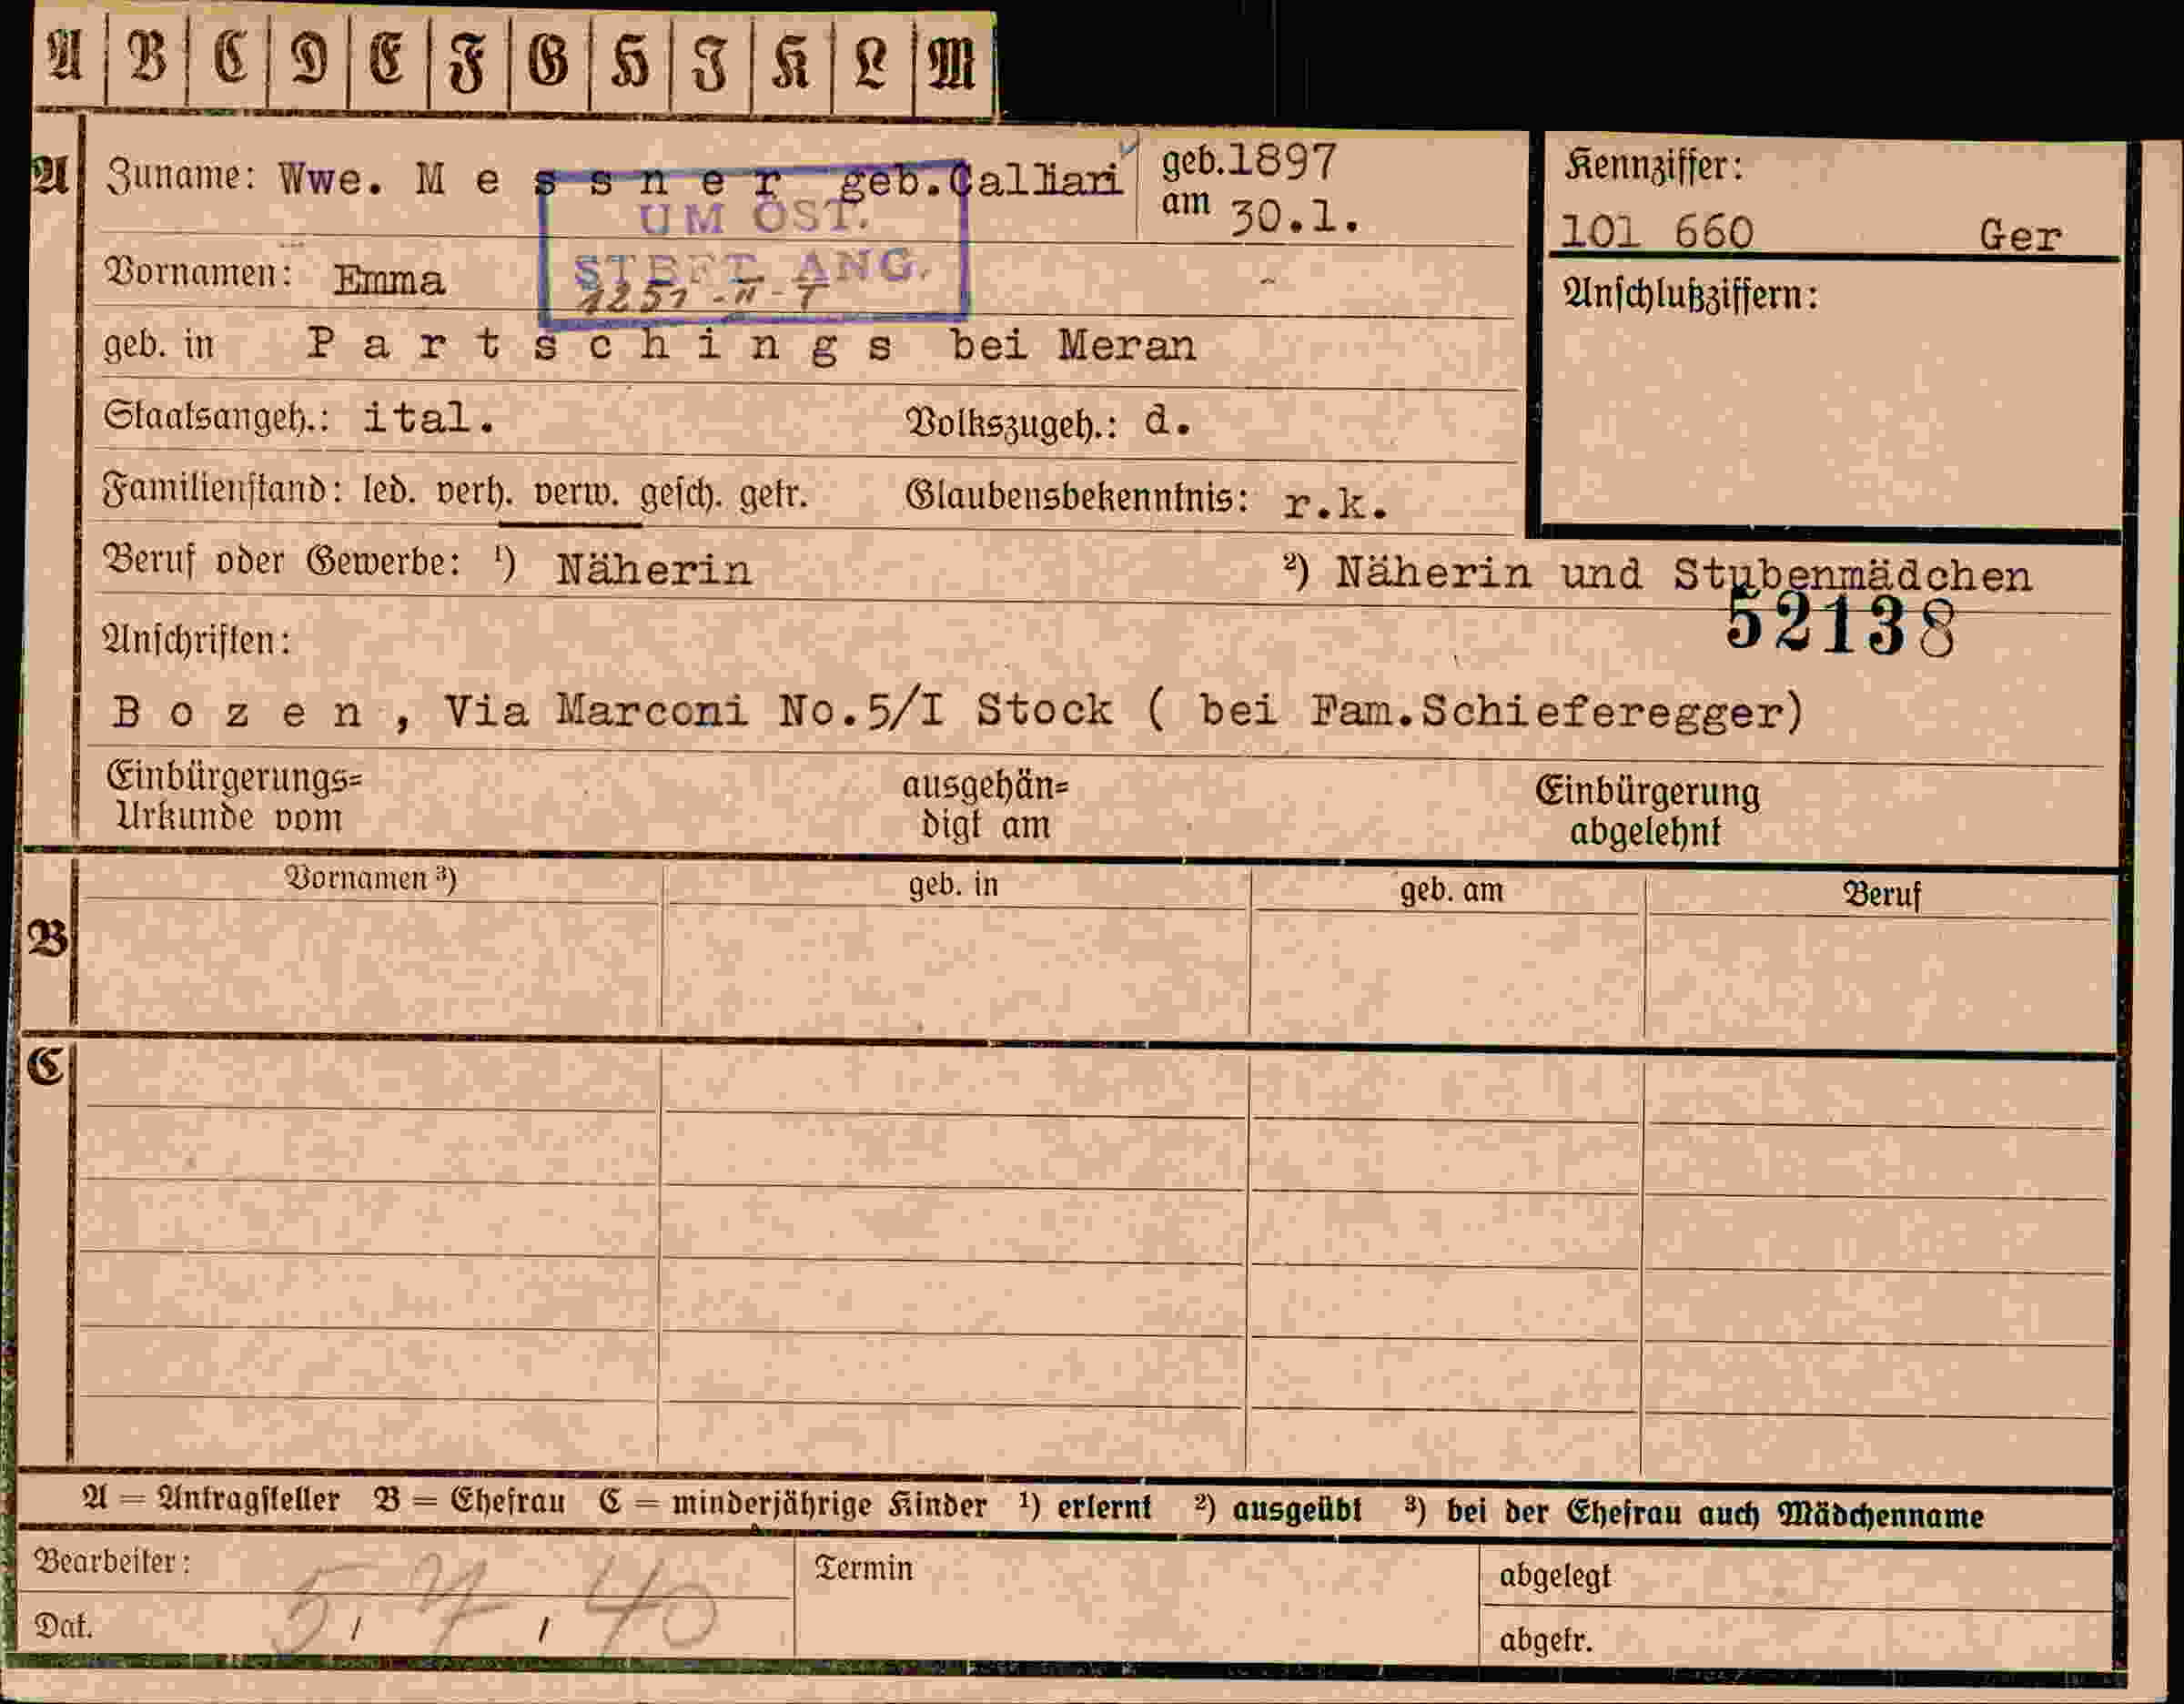 A B C D E F G H I K L M
A Zuname: Wwe. M e s s n e r geb.Calliari geb.1897
am 30.1.
Kennziffer:
101 660 Ger
UM ÖST.
STBFT. ANG.
1251-II-T
Vornamen: Emma
Anschlußziffern:
geb. in P a r t s c h i n g s bei Meran
Staatsangeh.: ital. Volkszugeh.: d.
Familienstand: led. verh. verw. gesch. getr. Glaubensbekenntnis: r.k.
Beruf oder Gewerbe: ¹) Näherin ²) Näherin und Stubenmädchen
52138
Anschriften:
B o z e n , Via Marconi No.5/I Stock ( bei Fam.Schieferegger)
Einbürgerungs= ausgehän= Einbürgerung
Urkunde vom digt am abgelehnt
Vornamen ³) geb. in geb. am Beruf
B
C
A = Antragsteller B = Ehefrau C = minderjährige Kinder ¹) erlernt ²) ausgeübt ³) bei der Ehefrau auch Mädchenname
Bearbeiter: Termin abgelegt
Dat. 5, 7, 40 abgetr.